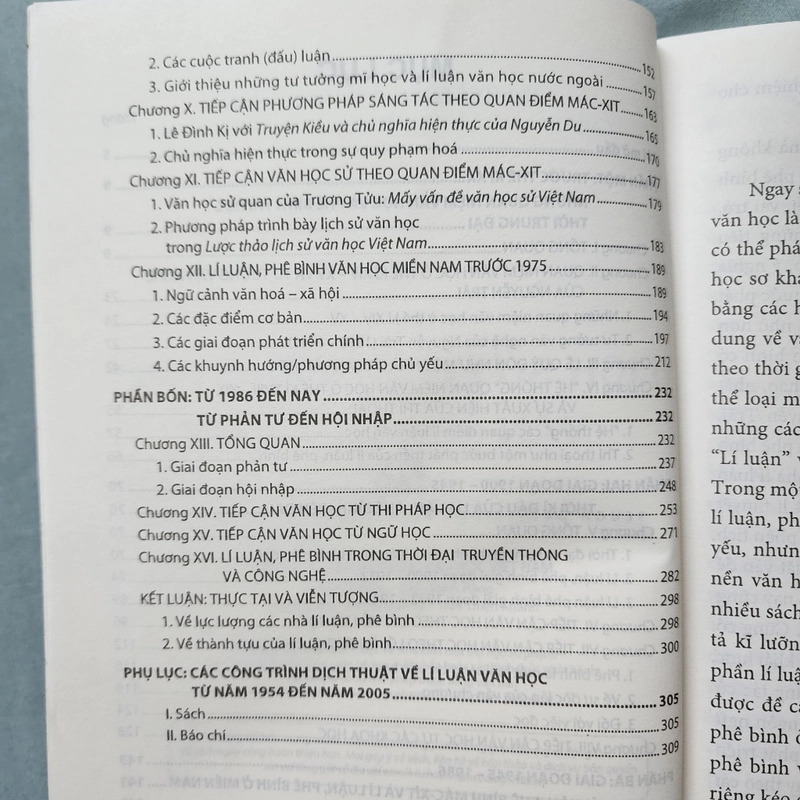 2. Các cuộc tranh (đấu) luận ... 152
3. Giới thiệu những tư tưởng mĩ học và lí luận văn học nước ngoài ... 157
Chương X. TIẾP CẬN PHƯƠNG PHÁP SÁNG TÁC THEO QUAN ĐIỂM MÁC-XIT ... 163
1. Lê Đình Kị với Truyện Kiều và chủ nghĩa hiện thực của Nguyễn Du ... 165
2. Chủ nghĩa hiện thực trong sự quy phạm hoá ... 176
Chương XI. TIẾP CẬN VĂN HỌC SỬ THEO QUAN ĐIỂM MÁC-XIT ... 177
1. Văn học sử quan của Trương Tửu: Mấy vấn đề văn học sử Việt Nam ... 179
2. Phương pháp trình bày lịch sử văn học
trong Lược thảo lịch sử văn học Việt Nam ... 183
Chương XII. LÍ LUẬN, PHÊ BÌNH VĂN HỌC MIỀN NAM TRƯỚC 1975 ... 189
1. Ngữ cảnh văn hoá – xã hội ... 189
2. Các đặc điểm cơ bản ... 194
3. Các giai đoạn phát triển chính ... 197
4. Các khuynh hướng/phương pháp chủ yếu ... 212
PHẦN BỐN: TỪ 1986 ĐẾN NAY ... 232
TỪ PHẢN TƯ ĐẾN HỘI NHẬP ... 232
Chương XIII. TỔNG QUAN ... 232
1. Giai đoạn phản tư ... 237
2. Giai đoạn hội nhập ... 248
Chương XIV. TIẾP CẬN VĂN HỌC TỪ THI PHÁP HỌC ... 253
Chương XV. TIẾP CẬN VĂN HỌC TỪ NGỮ HỌC ... 271
Chương XVI. LÍ LUẬN, PHÊ BÌNH TRONG THỜI ĐẠI TRUYỀN THÔNG
VÀ CÔNG NGHỆ ... 282
KẾT LUẬN: THỰC TẠI VÀ VIỄN TƯỢNG ... 298
1. Về lực lượng các nhà lí luận, phê bình ... 298
2. Về thành tựu của lí luận, phê bình ... 300
PHỤ LỤC: CÁC CÔNG TRÌNH DỊCH THUẬT VỀ LÍ LUẬN VĂN HỌC
TỪ NĂM 1954 ĐẾN NĂM 2005 ... 305
I. Sách ... 305
II. Báo chí ... 309
Ngay
văn học là
có thể phá
học sơ kha
bằng các h
dung về v
theo thời g
thể loại m
những các
“Lí luận” v
Trong mộ
lí luận, ph
yếu, nhưn
nền văn h
nhiều sách
tả kĩ lưỡn
phần lí luậ
được đề c
phê bình ở
phê bình v
riêng kéo